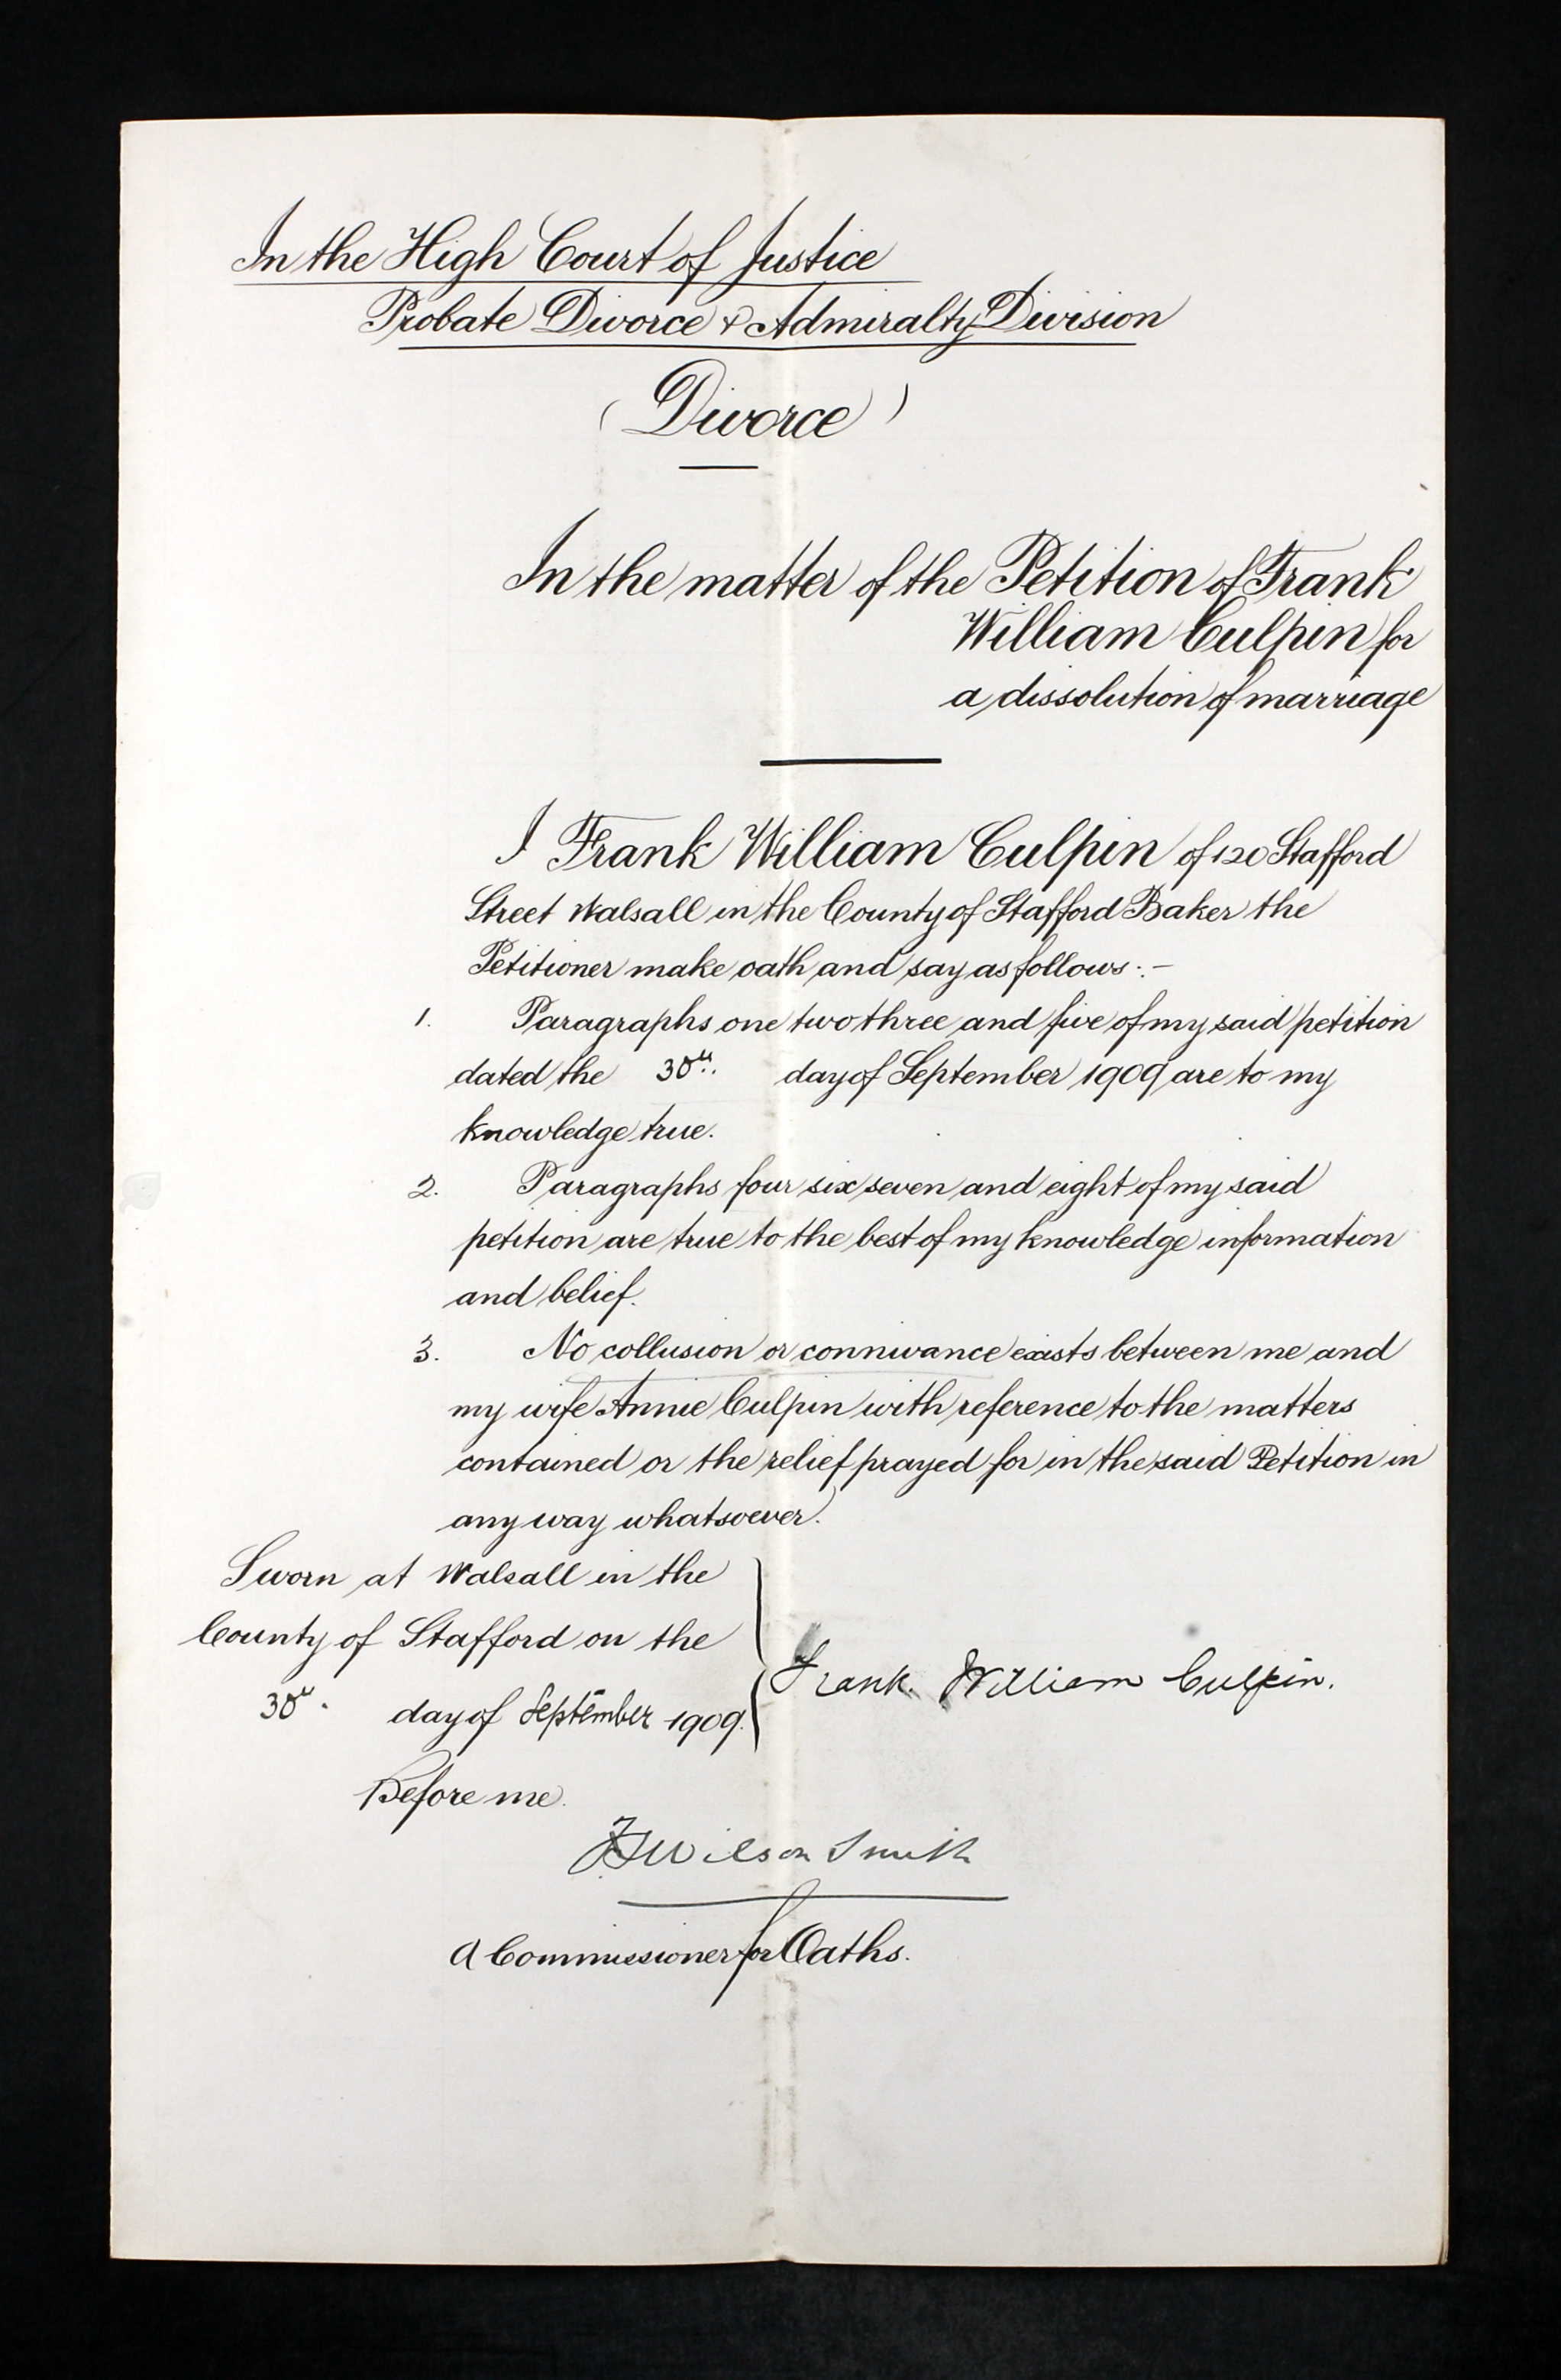 In the High Court of Justice
Probate Divorce & Admiralty Division
(Divorce)
In the matter of the Petition of Frank
William Culpin for
a dissolution of marriage
I Frank William Culpin of 120 Stafford
Street Walsall in the County of Stafford Baker the
Petitioner make oath and say as follows:-
1. Paragraphs one two three and five of my said petition
dated the 30th day of September 1909 are to my
knowledge true.
2. Paragraphs four six seven and eight of my said
petition are true to the best of my knowledge information
and belief.
3. No collusion or connivance exists between me and
my wife Annie Culpin with reference to the matters
contained or the relief prayed for in the said Petition in
any way whatsoever.
Sworn at Walsall in the
County of Stafford on the
30th day of September 1909.
Frank William Culpin.
Before me.
Wilson Smith
A Commissioner for Oaths.